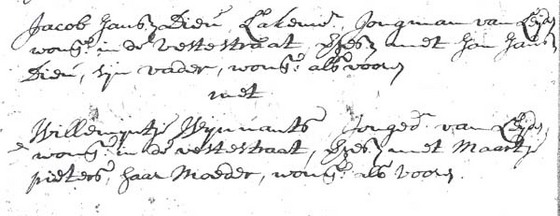 Jacob Jansz Dieu Lakenw. Jongman van Leyd
wong. in de vestestraat, verges. met Jan Jansz
Dieu, syn vader, wong. als voorn
met
Willempntje Wynants Jonged. van Leyd
wong. in de vestestraat, verges. met Maartje
pieters, haar Moeder, wong. als voorn.